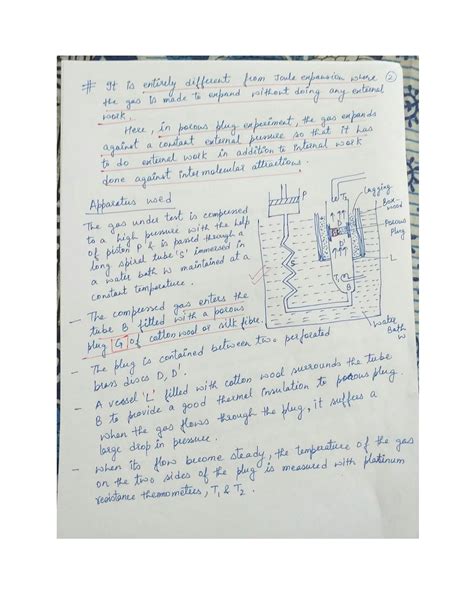 # It is entirely different from Joule expansion where (2)
the gas is made to expand without doing any external
work.
Here, in porous plug experiment, the gas expands
against a constant external pressure so that it has
to do external work in addition to internal work
done against intermolecular attractions.
Apparatus used
The gas under test is compressed
to a high pressure with the help
of piston P & is passed through a
long spiral tube 'S' immersed in
a water bath W maintained at a
constant temperature.
- The compressed gas enters the
tube B filled with a porous
plug G of cotton wool or silk fibre.
- The plug is contained between two perforated
brass discs D, D'.
- A vessel 'L' filled with cotton wool surrounds the tube
B to provide a good thermal insulation to porous plug.
- When the gas flows through the plug, it suffers a
large drop in pressure.
- When its flow become steady, the temperature of the gas
on the two sides of the plug is measured with platinum
resistance thermometers, T1 & T2.
P
T2
Lagging
Box wood
Porous
Plug
L
S
T1
B
Water
Bath
W